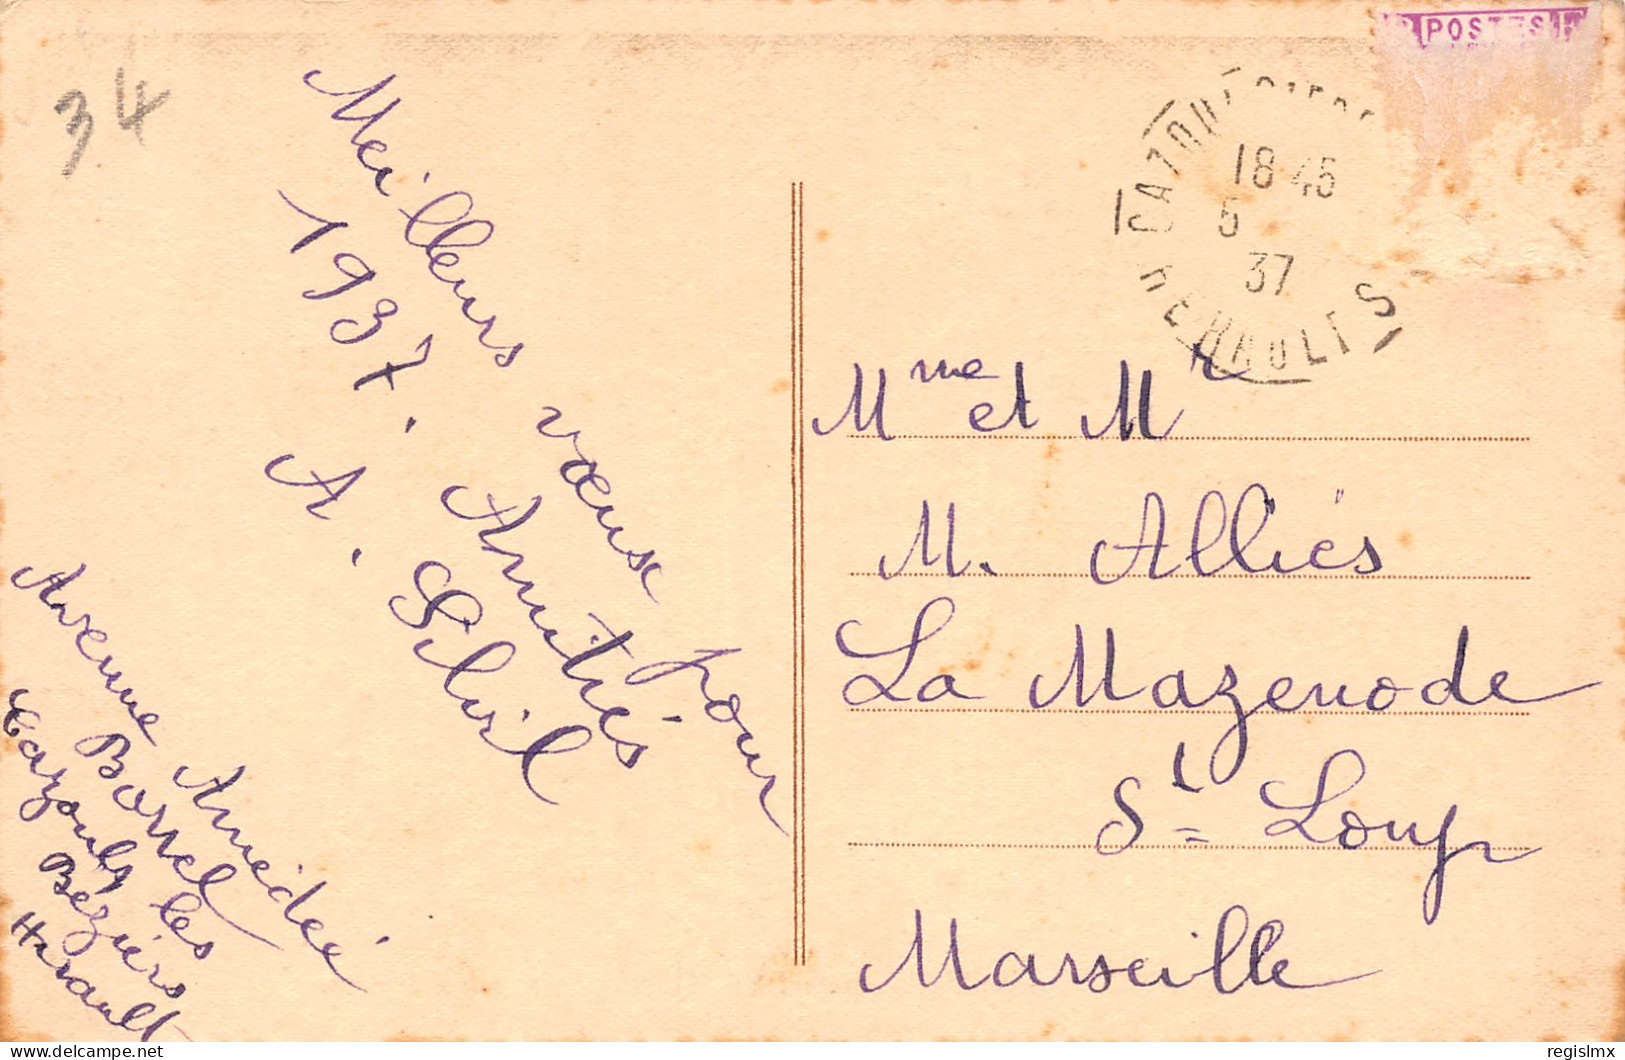 34
Meilleurs vœux pour
1937. Amitiés
A. Silvil
Avenue Amédée
Borrel
Cazouls les
Béziers
Hérault
POSTES
18 45
5
37
HERAULT
Mme et Mr
M. Alliés
La Mazenode
St Loup
Marseille
regislmx @ delcampe.net